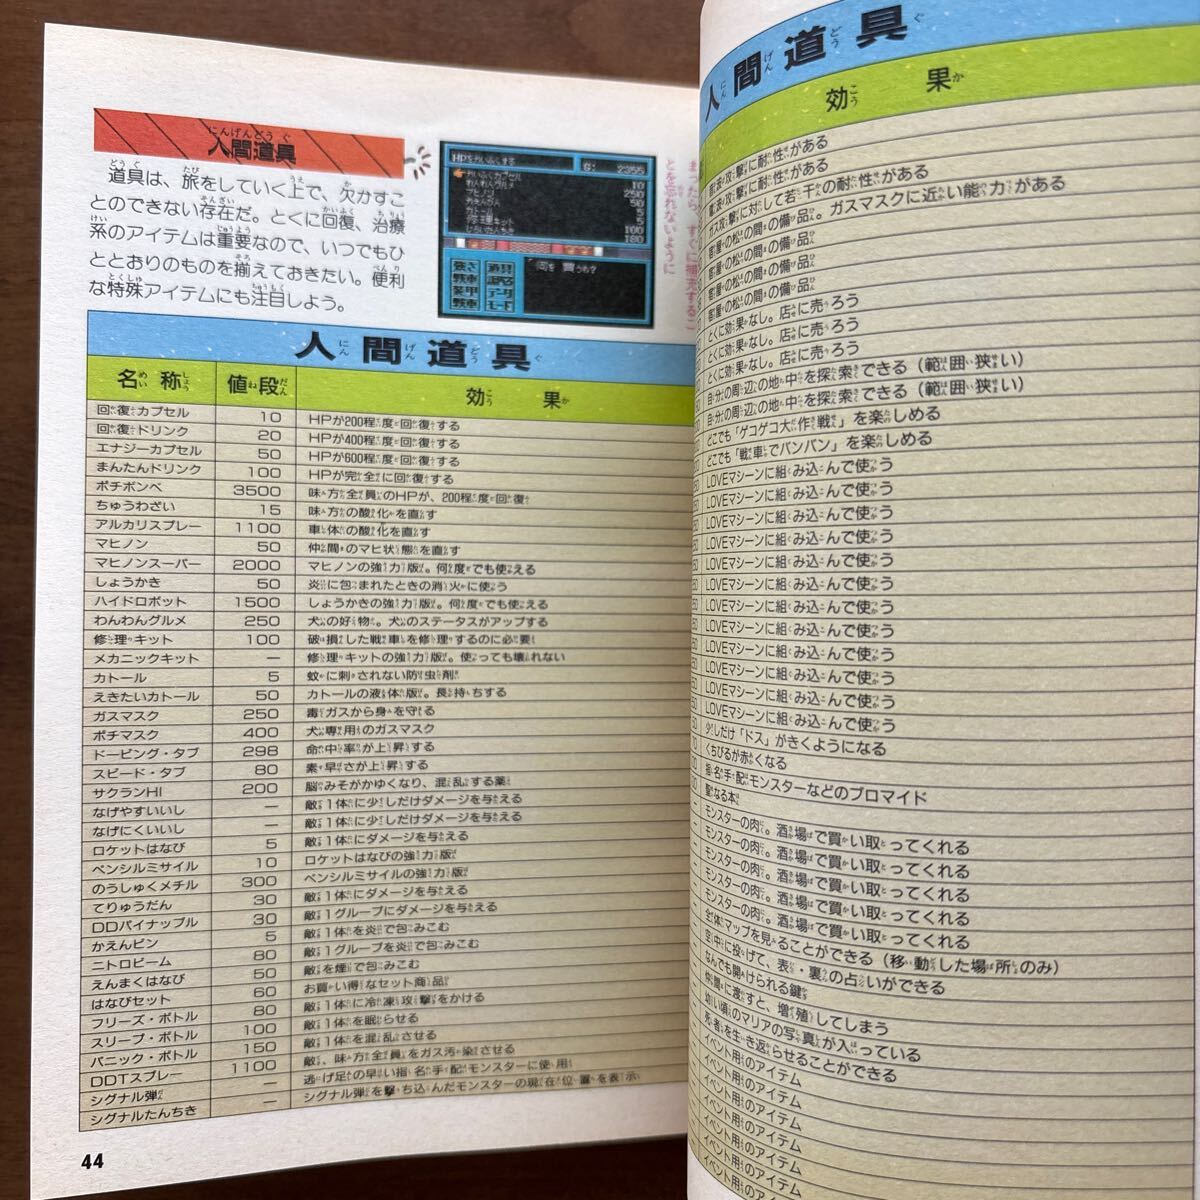 人間道具
道具は、旅をしていく上で、欠かすこ
とのできない存在だ。とくに回復、治療
系のアイテムは重要なので、いつでもひ
ととおりのものを揃えておきたい。便利
な特殊アイテムにも注目しよう。
HPをかいふくする
G: 2355
強さ 道具
戦車
装甲 データ
戦車 モード
何を 買うね?
まったら、すぐに補充するこ
とを忘れないように
人間道具
名称 値段 効果
回復カプセル 10 HPが200程度回復する
回復ドリンク 20 HPが400程度回復する
エナジーカプセル 50 HPが600程度回復する
まんたんドリンク 100 HPが完全に回復する
ポチボンベ 3500 味方全員のHPが、200程度回復
ちゅうわざい 15 味方の酸化を直す
アルカリスプレー 1100 車体の酸化を直す
マヒノン 50 仲間のマヒ状態を直す
マヒノンスーパー 2000 マヒノンの強力版。何度でも使える
しょうかき 50 炎に包まれたときの消火に使う
ハイドロボット 1500 しょうかきの強力版。何度でも使える
わんわんグルメ 250 犬の好物。犬のステータスがアップする
修理キット 100 破損した戦車を修理するのに必要
メカニックキット — 修理キットの強力版。使っても壊れない
カトール 5 蚊に刺されない防虫剤
えきたいカトール 50 カトールの液体版。長持ちする
ガスマスク 250 毒ガスから身を守る
ポチマスク 400 犬専用のガスマスク
ドーピング・タブ 298 命中率が上昇する
スピード・タブ 80 素早さが上昇する
サクランHI 200 脳みそがかゆくなり、混乱する薬
なげやすいいし — 敵1体に少しだけダメージを与える
なげにくいいし — 敵1体に少しだけダメージを与える
ロケットはなび 5 敵1体にダメージを与える
ペンシルミサイル 10 ロケットはなびの強力版
のうしゅくメチル 300 ペンシルミサイルの強力版
てりゅうだん 30 敵1体にダメージを与える
DDパイナップル 30 敵1グループにダメージを与える
かえんビン 5 敵1体を炎で包みこむ
ニトロビーム 80 敵1グループを炎で包みこむ
えんまくはなび 50 敵を煙で包みこむ
はなびセット 60 お買い得なセット商品
フリーズ・ボトル 80 敵1体に冷凍攻撃をかける
スリープ・ボトル 100 敵1体を眠らせる
パニック・ボトル 150 敵1体を混乱させる
DDTスプレー 1100 敵、味方全員をガス汚染させる
シグナル弾 — 逃げ足の早い指名手配モンスターに使用
シグナルたんちき — シグナル弾を撃ち込んだモンスターの現在位置を表示
44
人間道具
効果
電波攻撃に耐性がある
ガス攻撃に対して若干の耐性がある
ガスマスクに近い能力がある
宿屋の松の間の備品
宿屋の松の間の備品
宿屋の松の間の備品
宿屋の松の間の備品
とくに効果なし。店に売ろう
とくに効果なし。店に売ろう
とくに効果なし。店に売ろう
自分の周辺の地中を探索できる(範囲狭い)
自分の周辺の地中を探索できる(範囲狭い)
どこでも「ゲコゲコ大作戦」を楽しめる
どこでも「戦車でバンバン」を楽しめる
LOVEマシーンに組み込んで使う
LOVEマシーンに組み込んで使う
LOVEマシーンに組み込んで使う
LOVEマシーンに組み込んで使う
LOVEマシーンに組み込んで使う
LOVEマシーンに組み込んで使う
LOVEマシーンに組み込んで使う
LOVEマシーンに組み込んで使う
LOVEマシーンに組み込んで使う
LOVEマシーンに組み込んで使う
LOVEマシーンに組み込んで使う
少しだけ「ドス」がきくようになる
くちびるが赤くなる
指名手配モンスターなどのブロマイド
聖なる本
モンスターの肉。酒場で買い取ってくれる
モンスターの肉。酒場で買い取ってくれる
モンスターの肉。酒場で買い取ってくれる
モンスターの肉。酒場で買い取ってくれる
モンスターの肉。酒場で買い取ってくれる
全体マップを見ることができる(移動した場所のみ)
空中に投げて、表・裏の占いができる
なんでも開けられる鍵
仲間に渡すと、増殖してしまう
幼い頃のマリアの写真が入っている
死者を生き返らせることができる
イベント用のアイテム
イベント用のアイテム
イベント用のアイテム
イベント用のアイテム
イベント用のアイテム
イベント用のアイテム